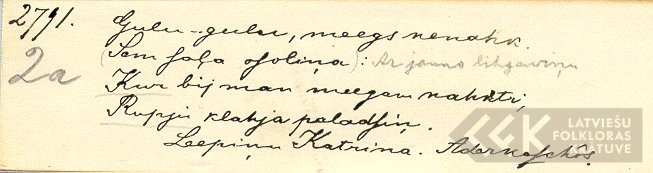 2791.
2a
Gulu-gulu, meegs nenahk.
(Sem saļa osoliņa): Ar jauno lihgawiņu
Kur bij man meegam nahkti,
Rupju klahja paladsiņ.
Leepiņu Katrina. Aderkaschôs.
LATVIEŠU
FOLKLORAS
KRĀTUVE